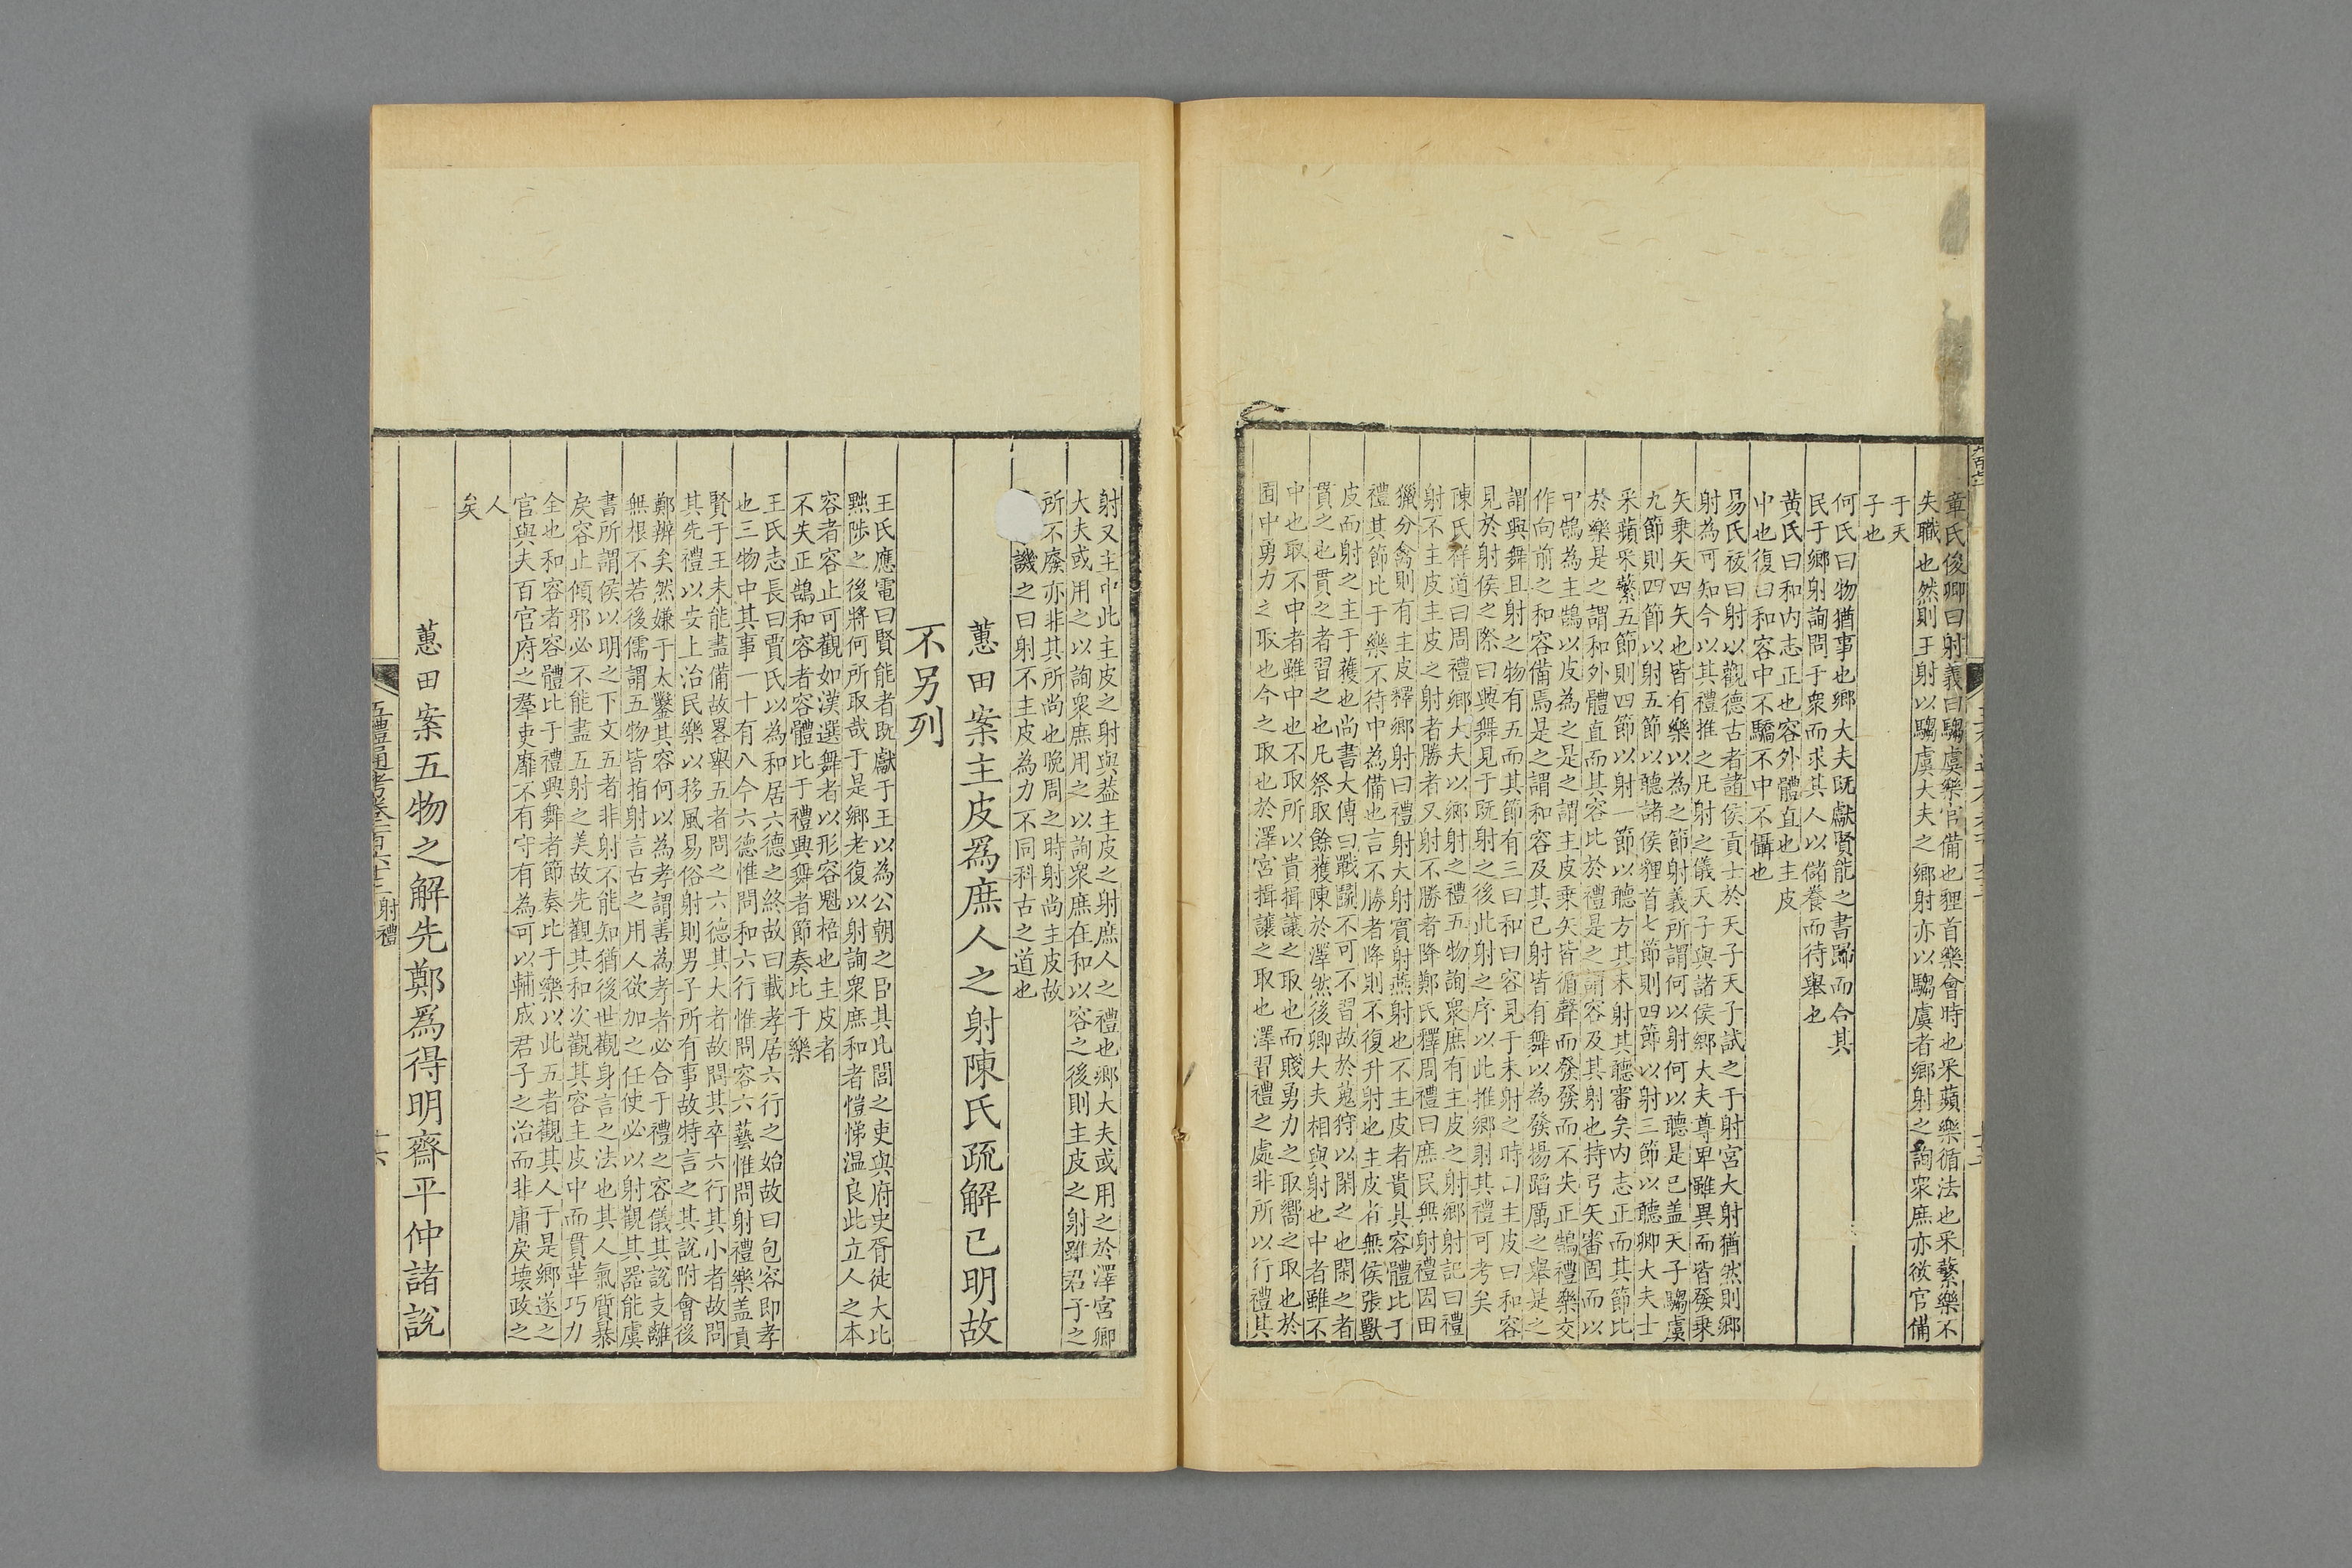 章氏俊卿曰射義曰騶虞樂官備也貍首樂會時也采蘋樂循法也采蘩樂不
失職也然則王射以騶虞大夫之鄉射亦以騶虞者鄉射之詢衆庶亦欲官備
于天
子也
何氏曰物猶事也鄉大夫既獻賢能之書歸而合其
民于鄉射詢問于衆而求其人以儲養而待舉也
黄氏曰和内志正也容外體直也主皮
中也復曰和容中不驕不中不懾也
易氏祓曰射以觀德古者諸侯貢士於天子天子試之于射宮大射猶然則鄉
射為可知今以其禮推之凡射之儀天子與諸侯鄉大夫尊卑雖異而皆發乗
矢乗矢四矢也皆有樂以為之節射義所謂何以射何以聽是已盖天子騶虞
九節則四節以射五節以聽諸侯貍首七節則四節以射三節以聽卿大夫士
采蘋采蘩五節則四節以射一節以聽方其未射其聽審矣内志正而其節比
於樂是之謂和外體直而其容比於禮是之謂容及其射也持弓矢審固而以
中鵠為主鵠以皮為之是之謂主皮乗矢皆循聲而發發而不失正鵠禮樂交
作向前之和容備焉是之謂和容及其已射皆有舞以為發揚蹈厲之舉是之
謂興舞且射之物有五而其節有三曰和曰容見于未射之時曰主皮曰和容
見於射侯之際曰興舞見于既射之後此射之序以此推鄉射其禮可考矣
陳氏祥道曰周禮鄉大夫以鄉射之禮五物詢衆庶有主皮之射鄉射記曰禮
射不主皮主皮之射者勝者又射不勝者降鄭氏釋周禮曰庶民無射禮因田
獵分禽則有主皮釋鄉射曰禮射大射賓射燕射也不主皮者貴其容體比于
禮其節比于樂不待中為備也言不勝者降則不復升射也主皮者無侯張獸
皮而射之主于獲也尚書大傳曰戰鬬不可不習故於蒐狩以閑之也閑之者
貫之也貫之者習之也凡祭取餘獲陳於澤然後卿大夫相與射也中者雖不
中也取不中者雖中也不取所以貴揖讓之取也而賤勇力之取嚮之取也於
囿中勇力之取也今之取也於澤宮揖讓之取也澤習禮之處非所以行禮其
射又主中此主皮之射與葢主皮之射庶人之禮也鄉大夫或用之於澤宮鄉
大夫或用之以詢衆庶用之以詢衆庶在和以容之後則主皮之射雖君子之
所不廢亦非其所尚也晩周之時射尚主皮故
譏之曰射不主皮為力不同科古之道也
蕙田案主皮爲庶人之射陳氏疏解已明故
不另列
王氏應電曰賢能者既獻于王以為公朝之臣其比閭之吏與府史胥徒大比
黜陟之後將何所取哉于是鄉老復以射詢衆庶和者愷悌温良此立人之本
容者容止可觀如漢選舞者以形容魁梧也主皮者
不失正鵠和容者容體比于禮興舞者節奏比于樂
王氏志長曰賈氏以為和居六德之終故曰載孝居六行之始故曰包容即孝
也三物中其事一十有八今六德惟問和六行惟問容六藝惟問射禮樂盖貢
賢于王未能盡備故畧舉五者問之六德其大者故問其卒六行其小者故問
其先禮以安上治民樂以移風易俗射則男子所有事故特言之其說附會後
鄭辨矣然嫌于太鑿其容何以為孝謂善為孝者必合于禮之容儀其說支離
無根不若後儒謂五物皆指射言古之用人欲加之任使必以射觀其器能虞
書所謂侯以明之下文五者非射不能知猶後世觀身言之法也其人氣質暴
戾容止傾邪必不能盡五射之美故先觀其和次觀其容主皮中而貫革巧力
全也和容者容體比于禮興舞者節奏比于樂以此五者觀其人于是鄉遂之
官與夫百官府之羣吏靡不有守有為可以輔成君子之治而非庸戾壊政之
人
矣
蕙田案五物之解先鄭爲得明齋平仲諸說
五禮通考卷一百六十二 射禮
十六